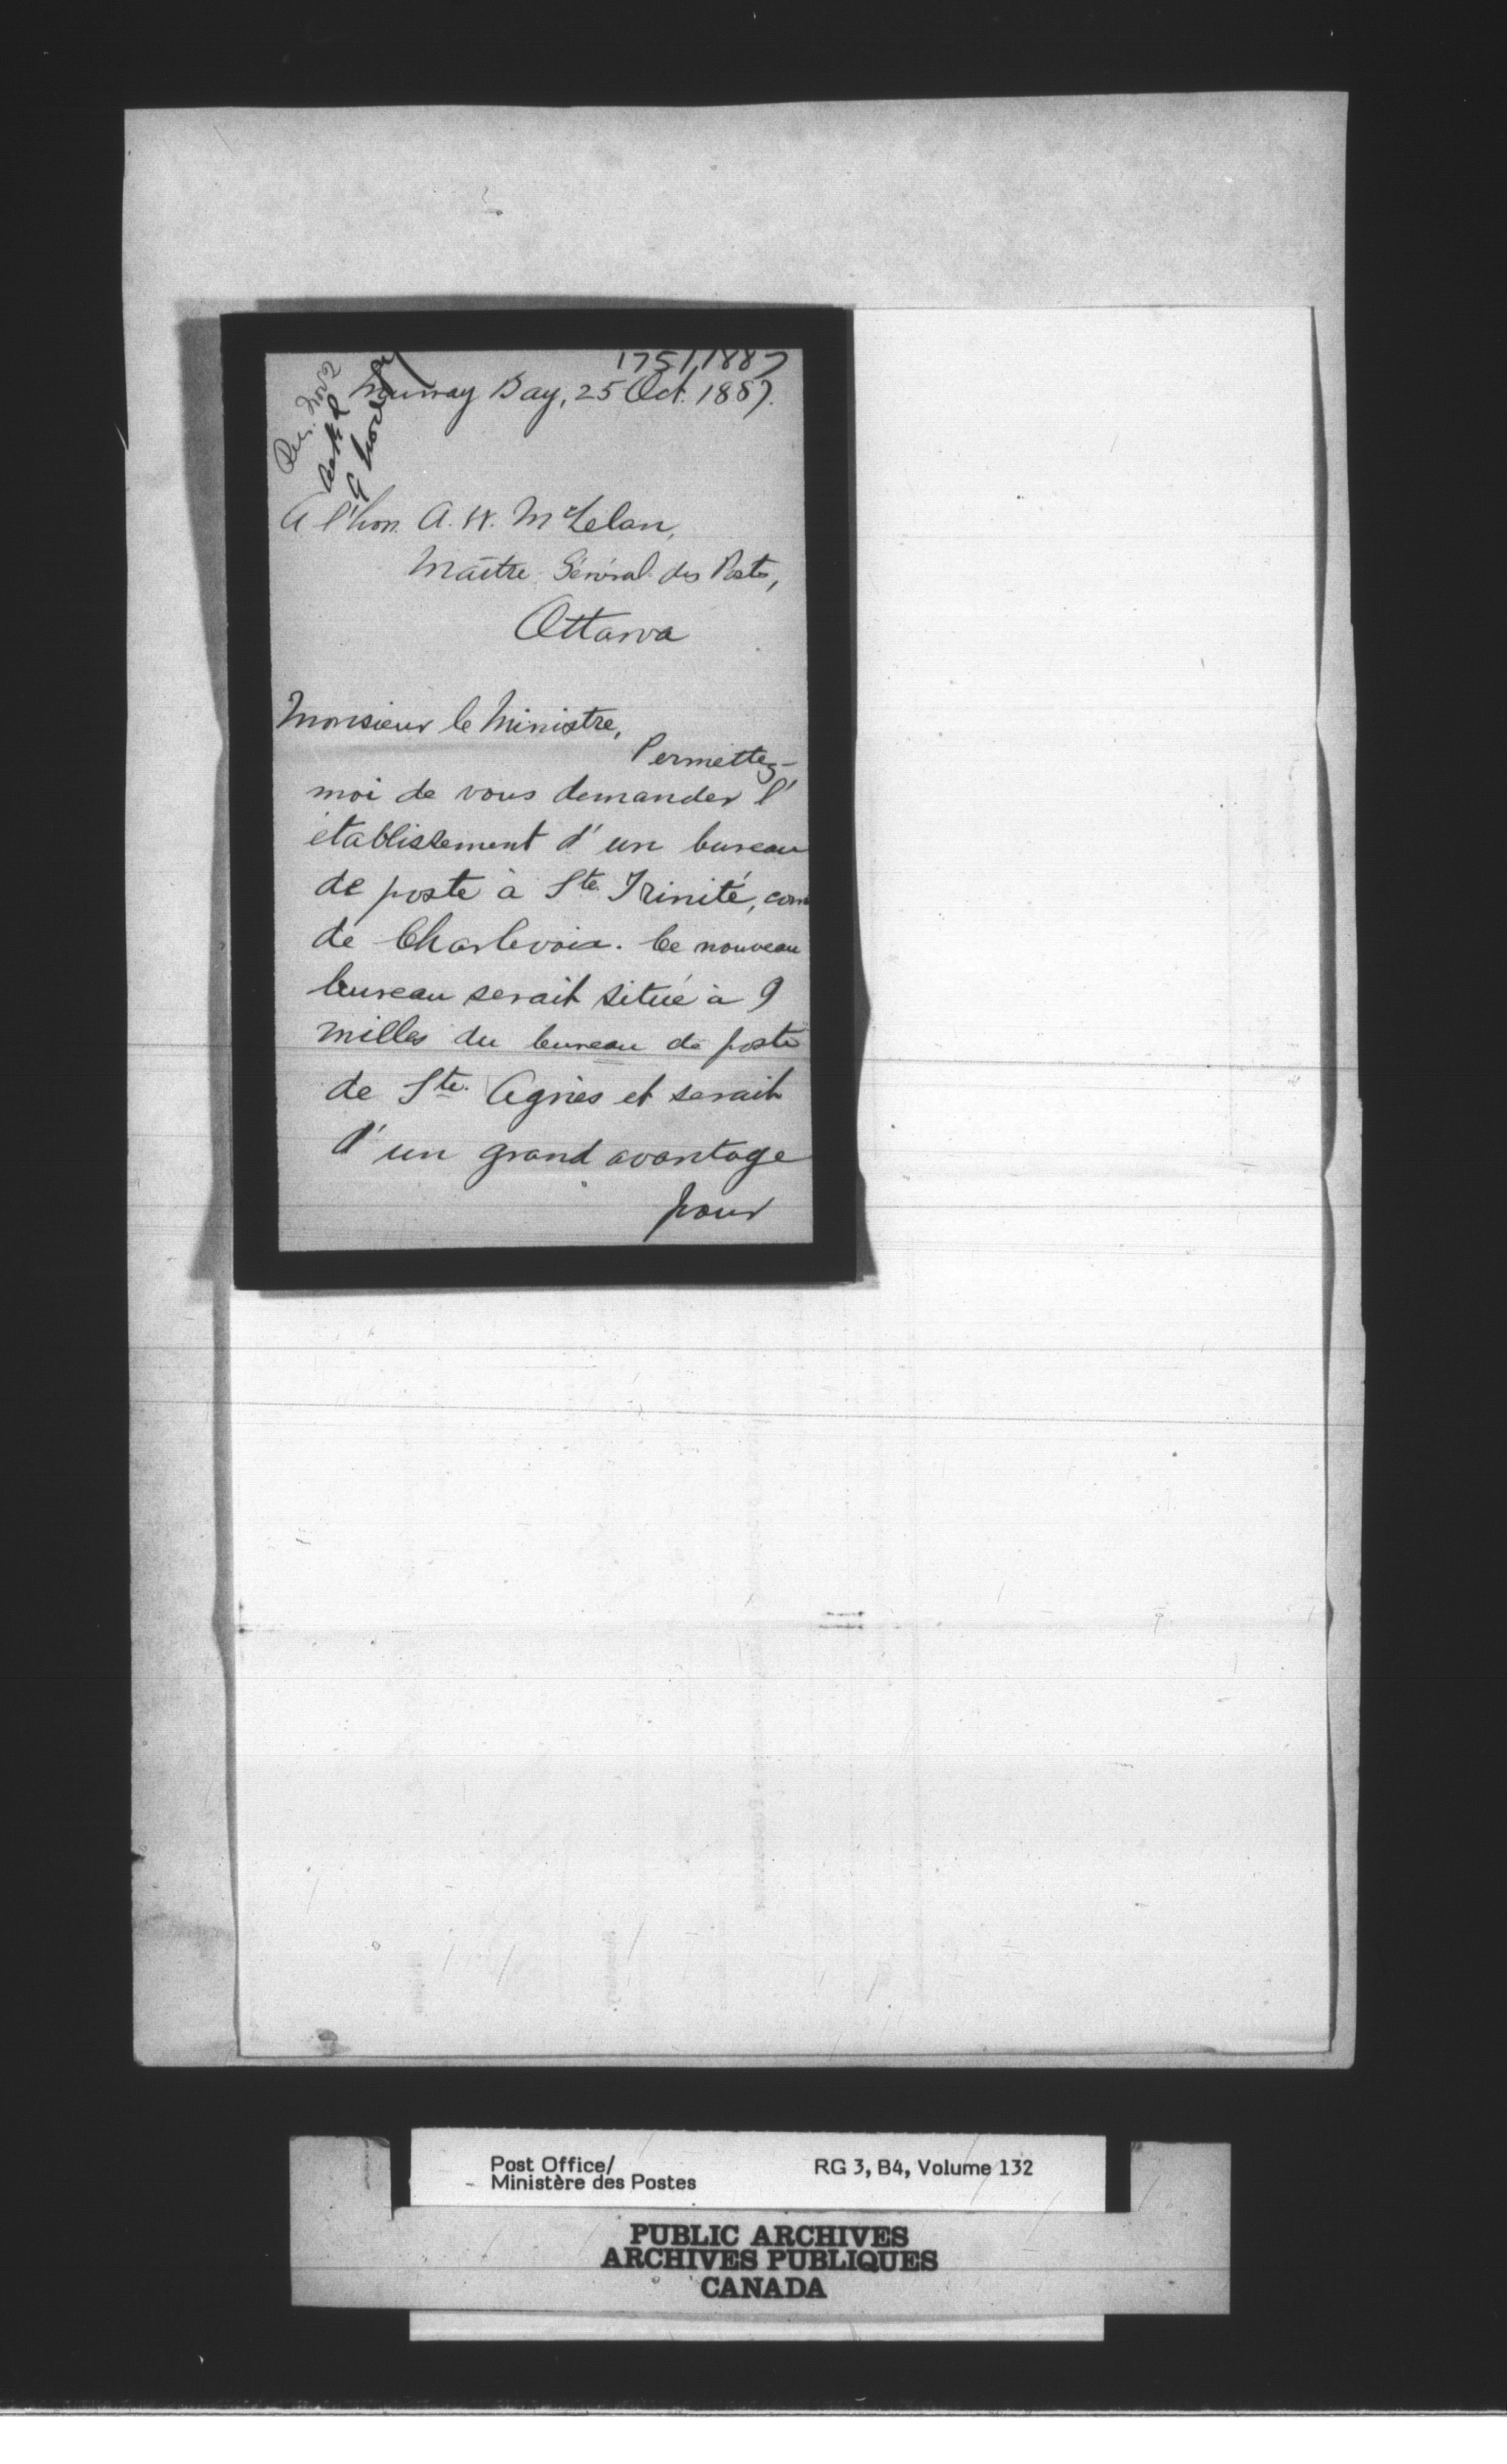 1751/1887
Murray Bay, 25 Oct. 1887.
Rec. Nov 2
A l'hon. A. W. McLelan,
Maître Général des Postes,
Ottawa
Monsieur le Ministre,
Permettez-
moi de vous demander l'
établissement d'un bureau
de poste à Ste. Trinité, com
de Charlevoix. Ce nouveau
bureau serait situé à 9
milles du bureau de poste
de Ste. Agnès et serait
d'un grand avantage
pour
Post Office/
Ministère des Postes
RG 3, B4, Volume 132
PUBLIC ARCHIVES
ARCHIVES PUBLIQUES
CANADA